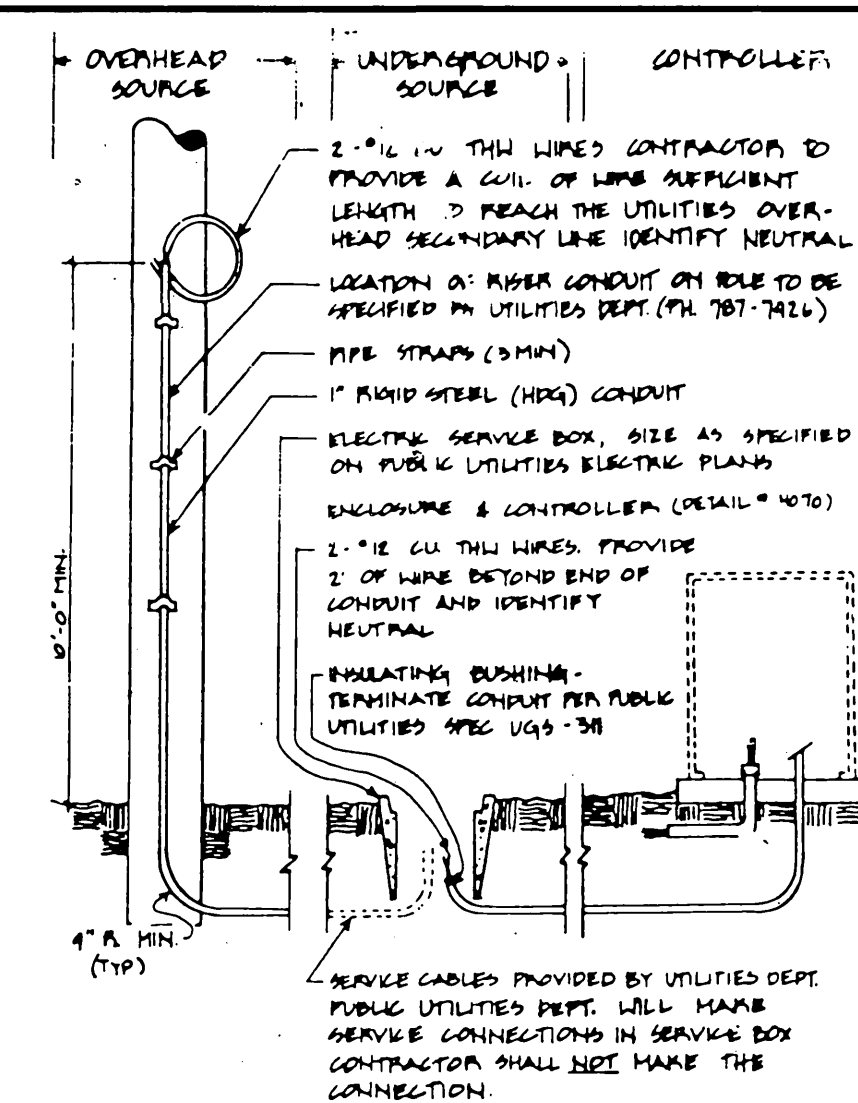 OVERHEAD
SOURCE
UNDERGROUND
SOURCE
CONTROLLER
2 - #12 THW WIRES CONTRACTOR TO
PROVIDE A COIL OF WIRE SUFFICIENT
LENGTH TO REACH THE UTILITIES OVER-
HEAD SECONDARY LINE IDENTIFY NEUTRAL
LOCATION OF RISER CONDUIT ON POLE TO BE
SPECIFIED BY UTILITIES DEPT. (PH. 787-7426)
PIPE STRAPS (3 MIN)
1" RIGID STEEL (HDG) CONDUIT
ELECTRIC SERVICE BOX, SIZE AS SPECIFIED
ON PUBLIC UTILITIES ELECTRIC PLANS
ENCLOSURE & CONTROLLER (DETAIL # 4070)
2 - #12 CU THW WIRES. PROVIDE
2' OF WIRE BEYOND END OF
CONDUIT AND IDENTIFY
NEUTRAL
INSULATING BUSHING -
TERMINATE CONDUIT PER PUBLIC
UTILITIES SPEC UGS - 311
MIN.
9" R MIN.
(TYP)
SERVICE CABLES PROVIDED BY UTILITIES DEPT.
PUBLIC UTILITIES DEPT. WILL MAKE
SERVICE CONNECTIONS IN SERVICE BOX
CONTRACTOR SHALL NOT MAKE THE
CONNECTION.